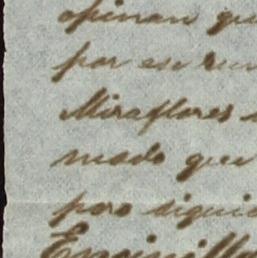 opinan que
por ese rum
Miraflores
mado que
pero siguie
Encinilla